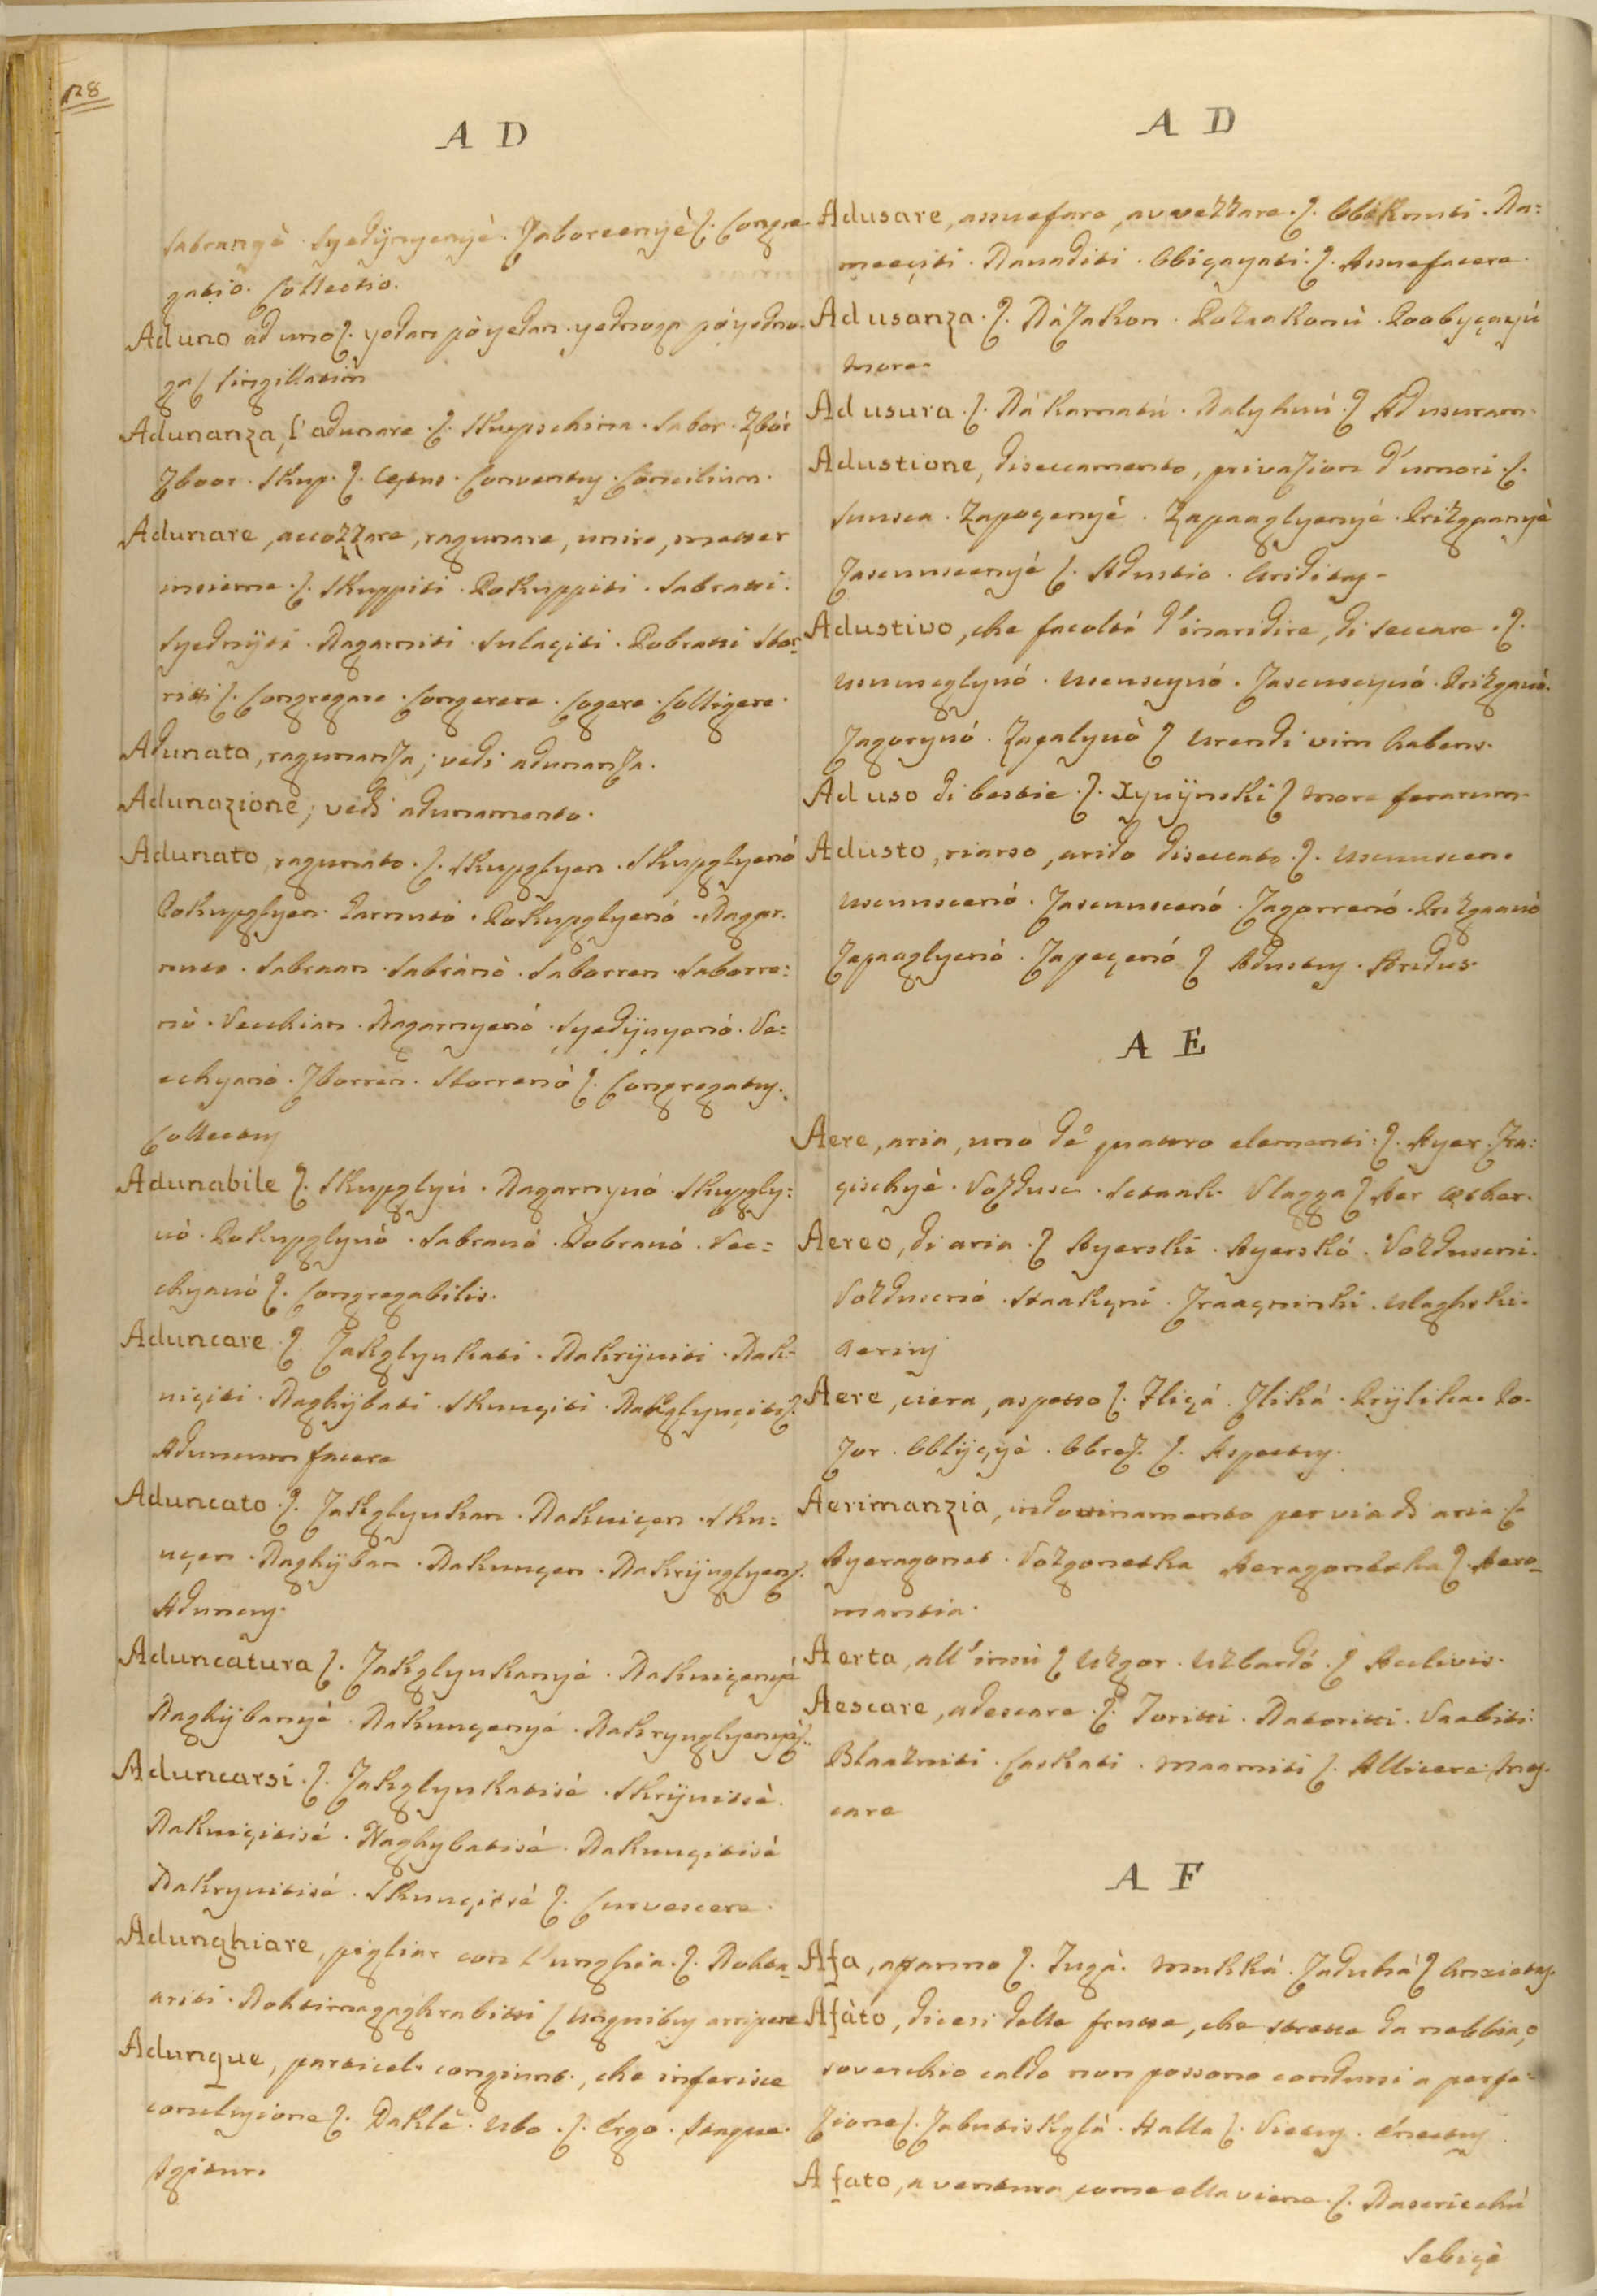 128
A D
Sabrangè Syedÿnyenyè. Zaboreenyè ʃ. Congre-
gatio. Collectio.
Ad uno ad uno ʃ. yedan pòyedan. yednoga póyedno-
ga ʃ Singillatim
Adunanza, l'adunare ʃ. Skupschina. Sabor. Zbór
Zboor. Skup. ʃ. Cętus. Conventuʒ. Concilium.
Adunare, accozzare, ragunare, unire, metter
insieme ʃ. Skuppiti. Pokuppiti. Sabratti.
Syednÿti. Nagarniti. Sulaçiti. Pobratti Sbor-
ritti ʃ. Congregare. Congerere. Cogere. Colligere.
Adunata, ragunanza; vedi adunanza.
Adunazione; vedi adunamento.
Adunato, ragunato. ʃ. Skupglyen. Skupglyenó
Pokupglyen. Garnutó. Pokupglyenó. Nagar-
nuto. Sabraan. Sabránò. Saborren. Saborre:
nò. Vecchian. Nagarnyenó. Syedÿnyenó. Ve=
echyanò. Zborren. Sborrenò ʃ. Congregatuʒ.
Collectuʒ
Adunabile ʃ. Skupglyú. Nagarnyuó. Skupgly:
uò. Pokupglyuò. Sabranó. Pobranó. Vee=
chyanó ʃ. Congregabilis.
Aduncare ʃ. Zakglyukati. Nakrÿuiti. Nak=
uiçiti. Naghÿbati. Skunçiti. Nakglyuçiti ʃ.
Aduncum facere
Aduncato ʃ. Zakglyukan. Nakuiçen. Sku=
uçen. Naghÿban. Nakunçen. Nakrÿuglyen ʃ.
Aduncuʒ.
Aduncatura ʃ. Zakglyukanyè. Nakuiçenyé
Naghÿbanyè. Nakunçenyé. Nakryuglyenyé ʃ.
Aduncarsi. ʃ. Zakglyukatisè. Skrÿuitsè.
Nakuiçitisé. Naghybatisè. Nakunçitisè
Nakryuitisé. Skunçitsè ʃ. Curvescere.
Adunghiare, pigliar con l'unghia. ʃ. Nokta-
ariti. Noktimagaghrabitti ʃ Unguibuʒ arripere
Adunque, particel. congiunt., che inferisce
conclusione ʃ. Daklè. Ubo. ʃ. Ergo. Itaque.
Igitur.
A D
Adusare, assuefare, avvezzare. ʃ. Obiknuti. Na=
mecçiti. Nauaditi. Obiçayati. ʃ. Assuefacere.
Ad usanza. ʃ. Ná Zakon. Pozakonù. Poobyçayú
more.
Ad usura. ʃ. Ná Kamatú. Nalyhuú. ʃ Ad usuram.
Adustione, diseccamento, privazion d'umori. ʃ.
Sunsca. Zapeçenyé. Zapaaglyenyé. Prizgaanyè
Zascunscenyé ʃ. Adustio. Ariditaʒ.
Adustivo, che facoltá d'inaridire, di seccare. ʃ.
Usunsglyuó. Uscuscyuó. Zascuscyuó. Prizgauò.
Zagoryuó. Zapalyuò ʃ Urendi vim habens.
Ad uso di bestie. ʃ. Xyuÿnski ʃ more ferarum.
Adusto, riarso, arido diseccato. ʃ. Uscunscen.
Uscunscenó. Zascunscenó. Zagorrenó. Prizgaanò
Zapaaglyenó. Zapeçenó ʃ Adustuʒ. Aridus.
A E
Aere, aria, uno de' quattro elementi. ʃ. Ayer. Zra:
çischyé. Vozdusc. Setaak. Vlagga ʃ Aer Æther.
Aereo, di aria. ʃ Ayerski. Ayerskó. Vozduseni.
Vozdusenó. Staakçni. Zraaçninski. Ulaghski.
Aeriuʒ
Aere, ciera, aspetto ʃ. Zliçá. Zliká. Prÿlika. Po-
zor. Oblÿçyè. Obraz. ʃ. Aspectuʒ.
Aerimanzia, indovinamento per via di aria. ʃ.
Ayeragonet. Vozgonetka Aeragonetka ʃ. Aero-
mantia.
A erta, all'insù ʃ Uzgor. Uzbardó. ʃ Acclivis.
Aescare, adescare. ʃ. Toritti. Natoritti. Vaabiti.
Blaazniti. Laskati. Maamiti ʃ. Allicere. Ineʒ-
care
A F
Afa, affanno ʃ. Tugà. Mukká. Zaduhá ʃ Anxietaʒ.
Afàto, dicesi delle frutta, che strette da nebbia, o
soverchio caldo non possono condursi a perfe-
zione ʃ. Zabutiskglà. Halla ʃ. Vietuʒ. Enectuʒ
A fato, a ventura come ella viene. ʃ. Nasricchú
Sebiçè